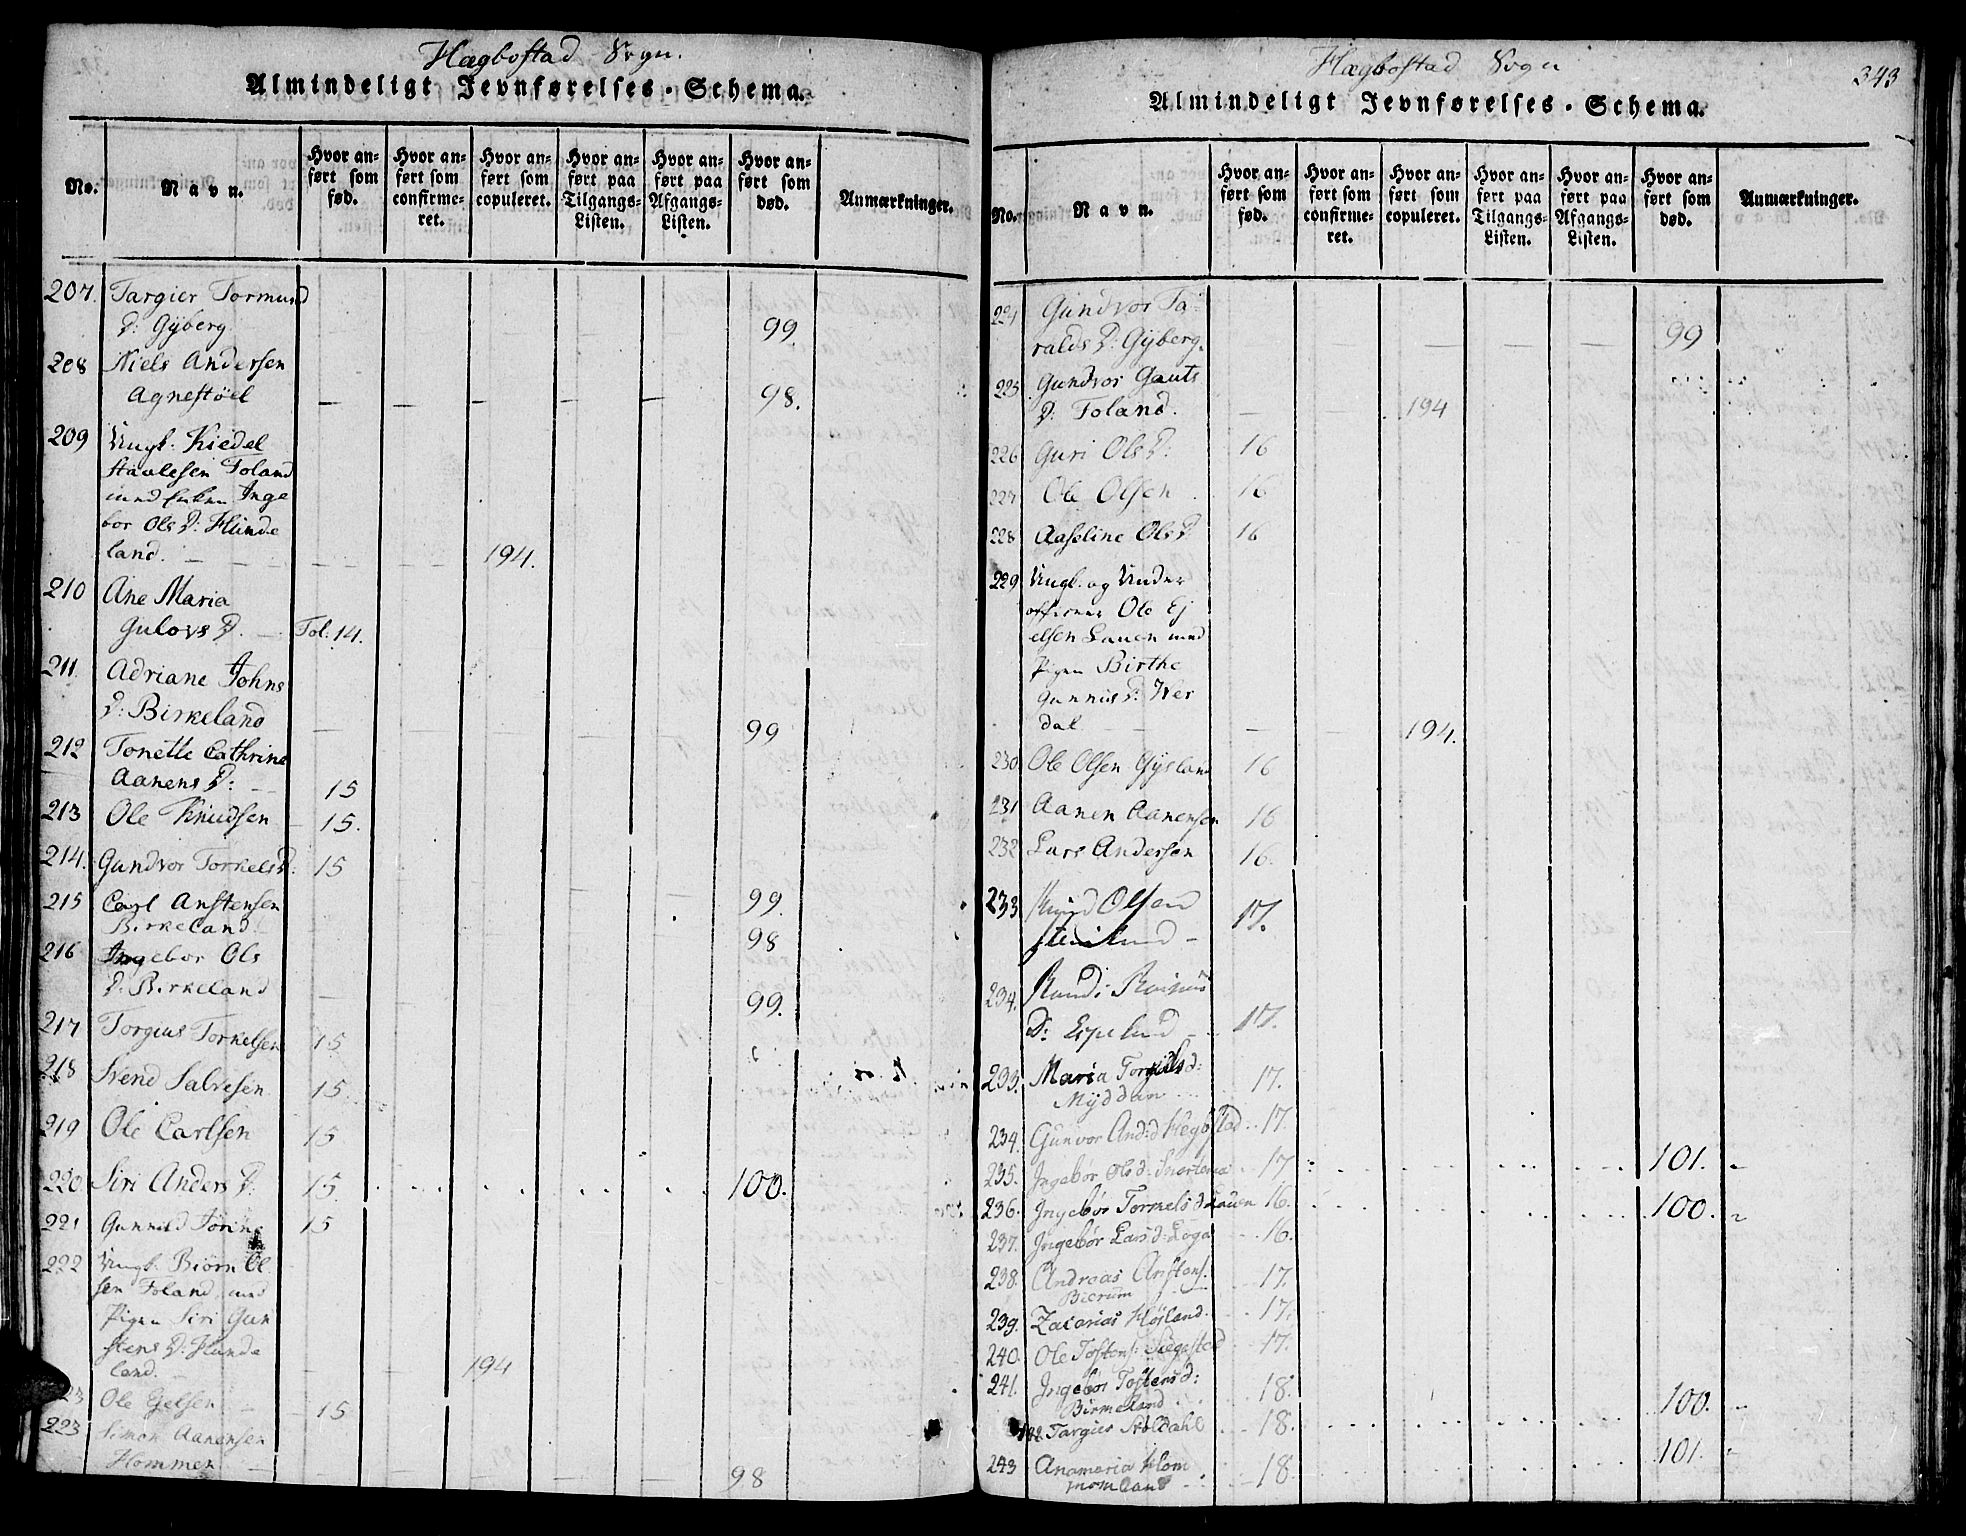 Hægbostad Sogn.
Almindeligt Jevnførelses-Schema.
No. Navn. Hvor anført som fød. Hvor anført som confirmeret. Hvor anført som copuleret. Hvor anført paa Tilgangs-Listen. Hvor anført paa Afgangs-Listen. Hvor anført som død. Anmærkninger.
207. Targier Tormund
D: Gÿberg 99.
208 Niels Andersen
Agnestöel 98.
209 Ungk. Kiedel
Staalesen Foland
med Enken Inge
bor Ols D: Hunde
land. 194.
210 Ane Maria
Gulovs D. Fol. 14.
211 Adriane Johns
D: Birkeland 99
212 Tonette Cathrine
Aanens D: 15
213 Ole Knudsen 15.
214. Gundvor Torkels D. 15
215 Carl Anstensen 99.
Birkeland 98
216 Ingebor Ols
D. Birkeland 99.
217 Torgius Torkelsen 15
218 Svend Salvesen 15
219 Ole Carlsen 15
220 Siri Anders D. 15. 100.
221 Gunnild Jörine 15
222 Ungk. Biörn Ol
sen Foland, med
Pigen Siri Gun
stens D: Hunde
land. 194
223 Ole Ejelsen 15
223 Simon Aanensen
Hommen 98
Hægbostad Sogn
343
Almindeligt Jevnførelses-Schema.
No. Navn. Hvor anført som fød. Hvor anført som confirmeret. Hvor anført som copuleret. Hvor anført paa Tilgangs-Listen. Hvor anført paa Afgangs-Listen. Hvor anført som død. Anmærkninger.
224 Gundvor Ta-
ralds D: Gÿberg. 99
225 Gundvor Gauts
D. Foland. 194
226 Guri Ols D. 16
227 Ole Olsen 16
228 Aaseline Ols D 16
229 Ungk. og Under
officeer Ole Ej
elsen Lauen med
Pigen Birthe
Gunnus D:
dal 194.
230 Ole Olsen Gÿsland 16
231 Aanen Aanensen 16
232 Lars Andersen 16.
233 Knud Olsen 17.
234. Randi
D: Espelund 17.
233. Maria Torgiusd:
Mÿddan 17.
234. Gunvor And:d Hegbstad 17.
235. Ingebør Olsd: Snartemo 17 101.
236. Ingebør Tormelsd Lauen 16. 100.
237. Ingebør Larsd: Loga 16.
238. Andreas Anstens.
Bierum 17.
239. Zacarias Höjland 17.
240. Ole Tostens:Ægestad 17.
241. Ingebor Tostensd:
Birmeland 18. 100.
Targies Stöldahl 18.
243 Anamaria Hom
momland 18 101.